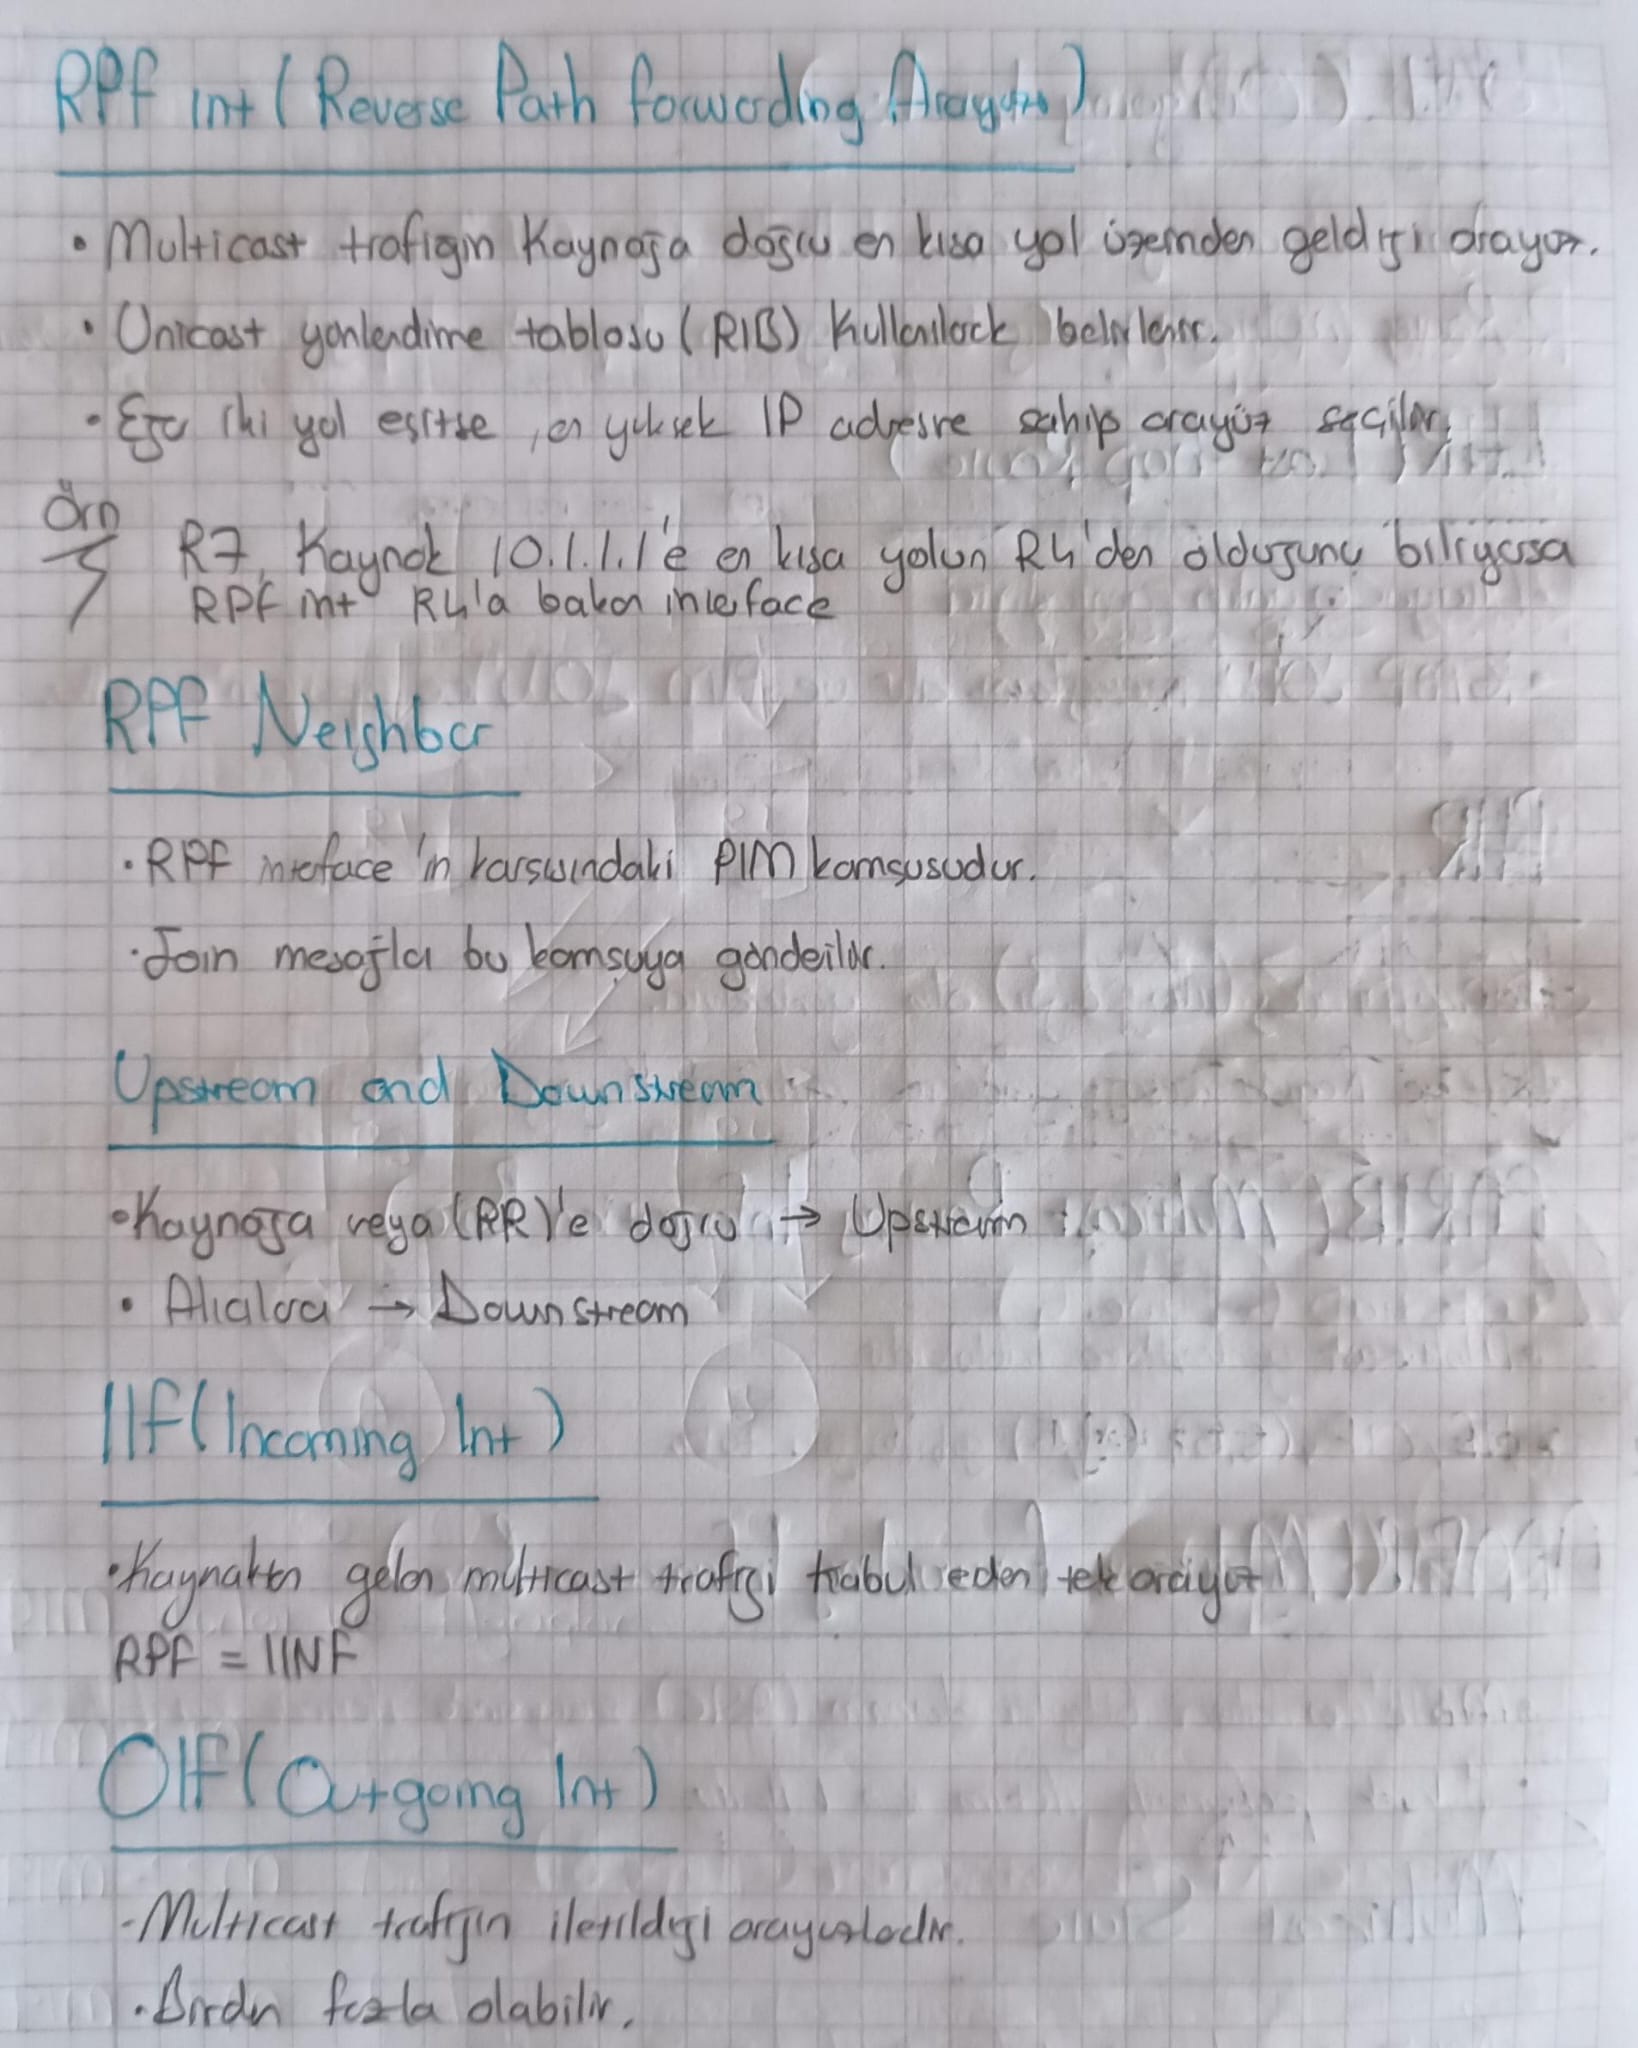 RPF Int (Reverse Path Forwarding Arayüzü)
• Multicast trafiğin Kaynağa doğru en kısa yol üzerinden geldiği arayüz.
• Unicast yönlendirme tablosu (RIB) Kullanılarak belirlenir.
• Eğer iki yol eşitse, en yüksek IP adresine sahip arayüz seçilir.
Örn
R7, Kaynak 10.1.1.1'e en kısa yolun R4'den olduğunu biliyorsa
RPF int R4'a bakan interface
RPF Neighbor
• RPF interface'in karşısındaki PIM komşusudur.
• Join mesajları bu komşuya gönderilir.
Upstream and Downstream
• Kaynağa veya (RR)'e doğru → Upstream
• Alıcılara → Downstream
IIF (Incoming Int)
• Kaynaktan gelen multicast trafiği kabul eden tek arayüz
RPF = IINF
OIF (Outgoing Int)
- Multicast trafiğin iletildiği arayüzlerdir.
• Birden fazla olabilir.